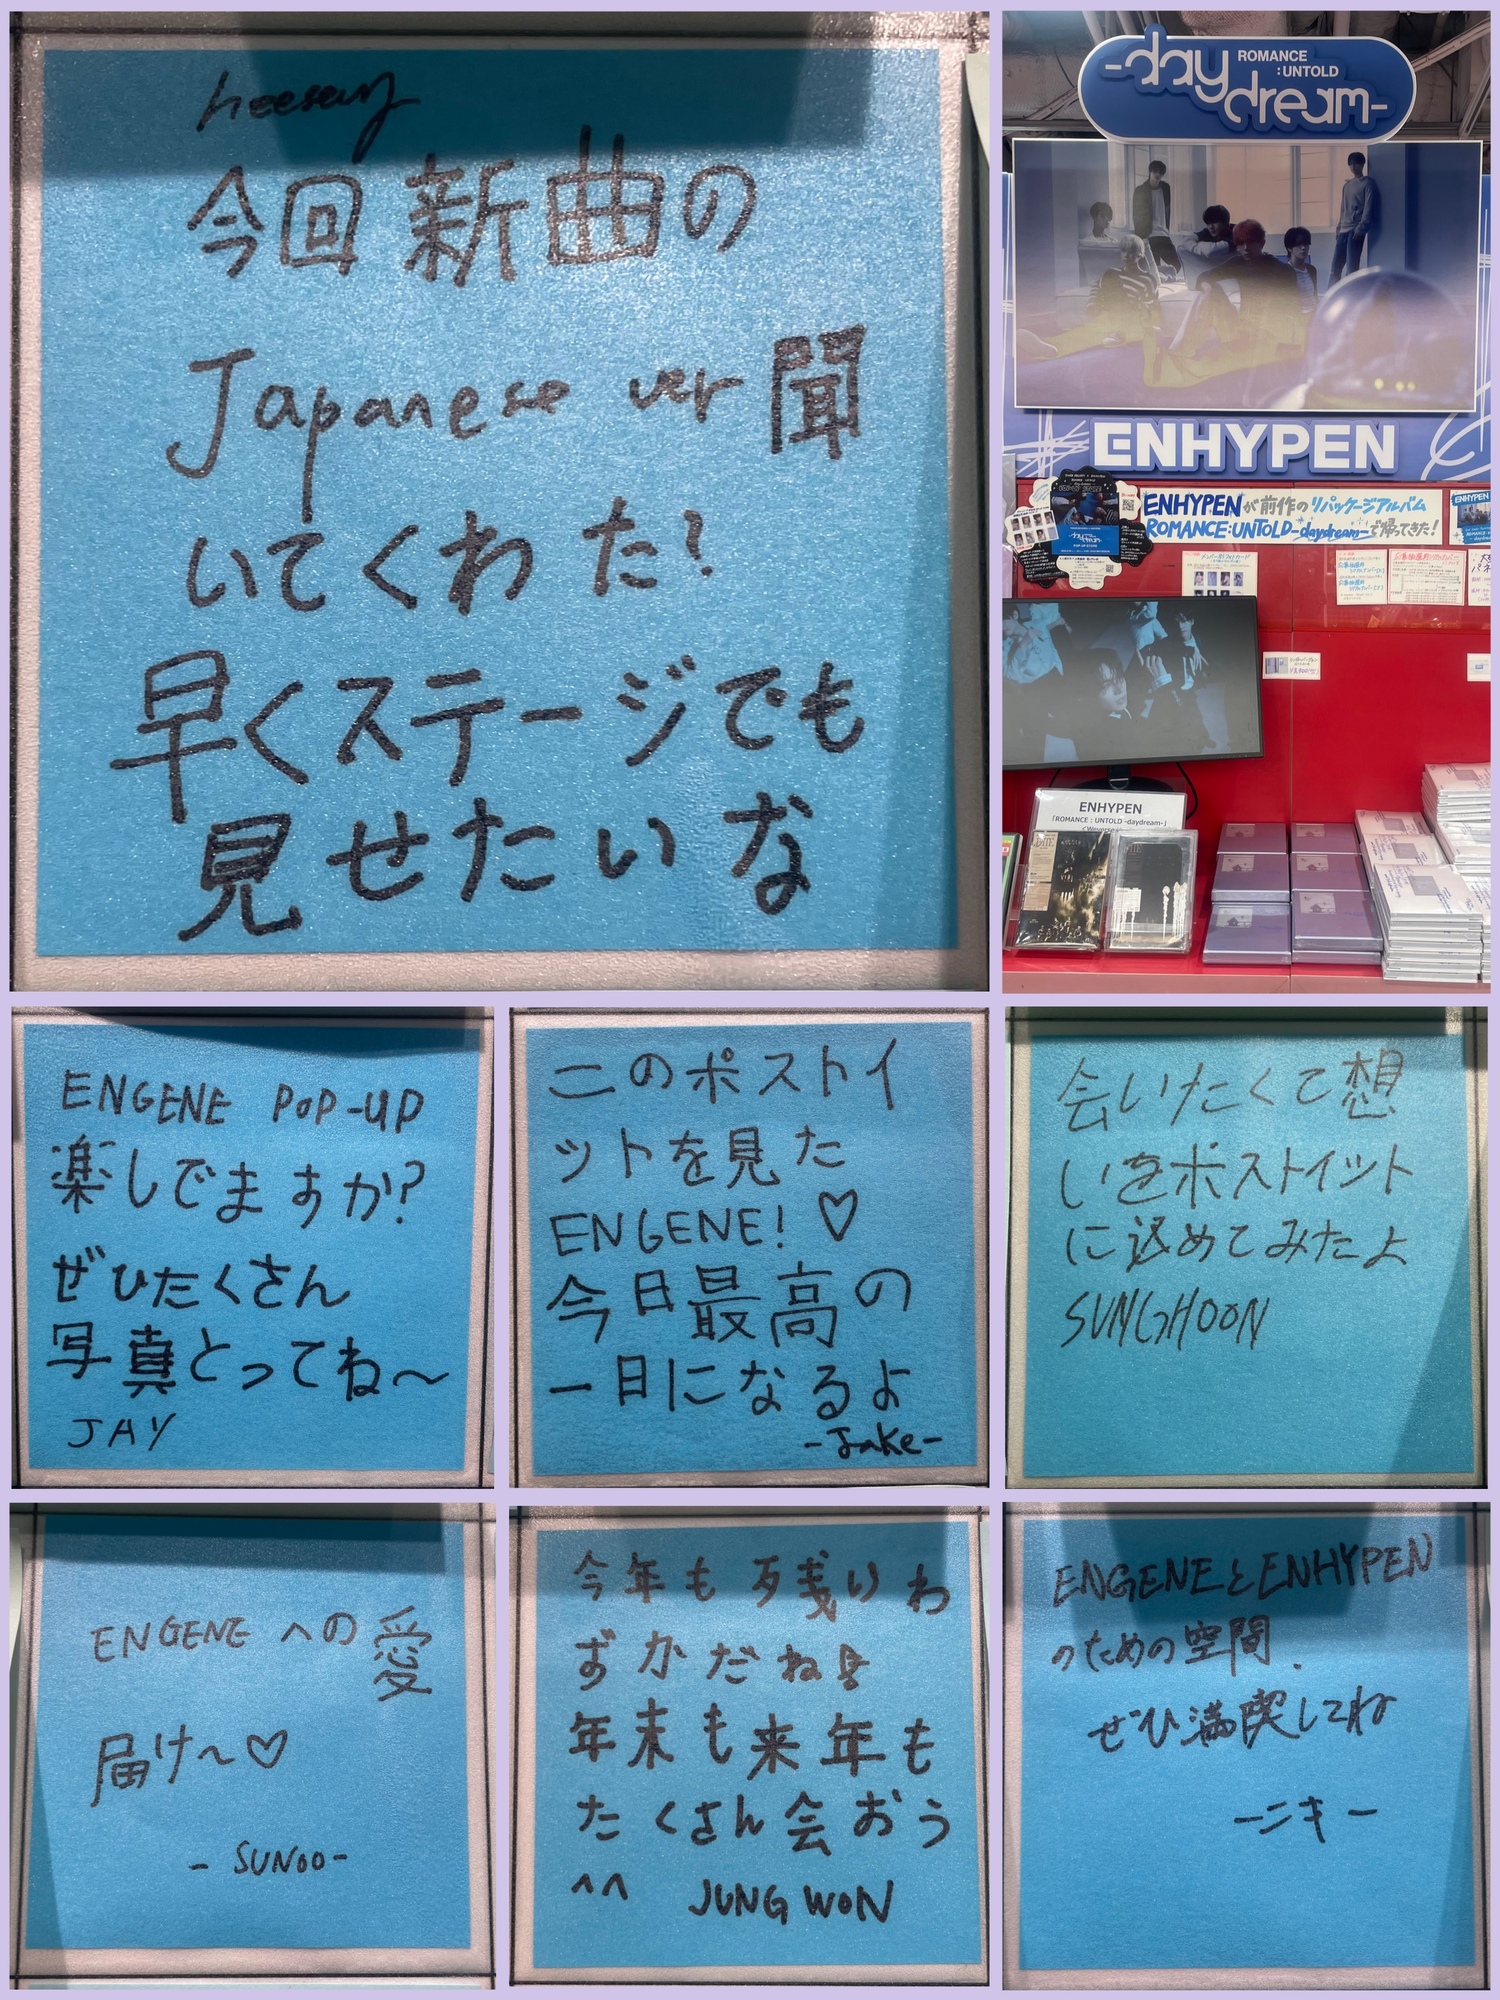 heeseung
今回新曲の
Japanese ver 聞
いてくわた?
早くステージでも
見せたいな
-day
ROMANCE
:UNTOLD
dream-
ENHYPEN
ENHYPENが前作のリパッケージアルバム
ROMANCE:UNTOLD-daydream-で帰ってきた!
ENHYPEN
「ROMANCE : UNTOLD -daydream-」
ENGENE POP-UP
楽しでますか?
ぜひたくさん
写真とってね〜
JAY
このポストイ
ットを見た
ENGENE! ♡
今日最高の
一日になるよ
-Jake-
会いたくて想
いをポストイット
に込めてみたよ
SUNGHOON
ENGENEへの愛
届け〜♡
- SUNOO-
今年も残いわ
ずかだね
年末も来年も
たくさん会おう
^^ JUNG WON
ENGENEとENHYPEN
のための空間.
ぜひ満喫してね
ーニキー